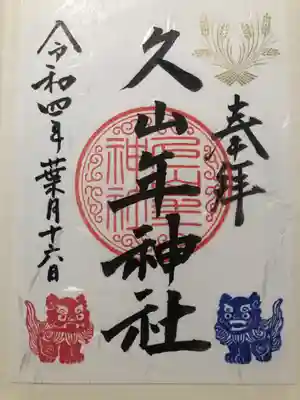 奉拝
久山年神社
令和四年葉月十六日